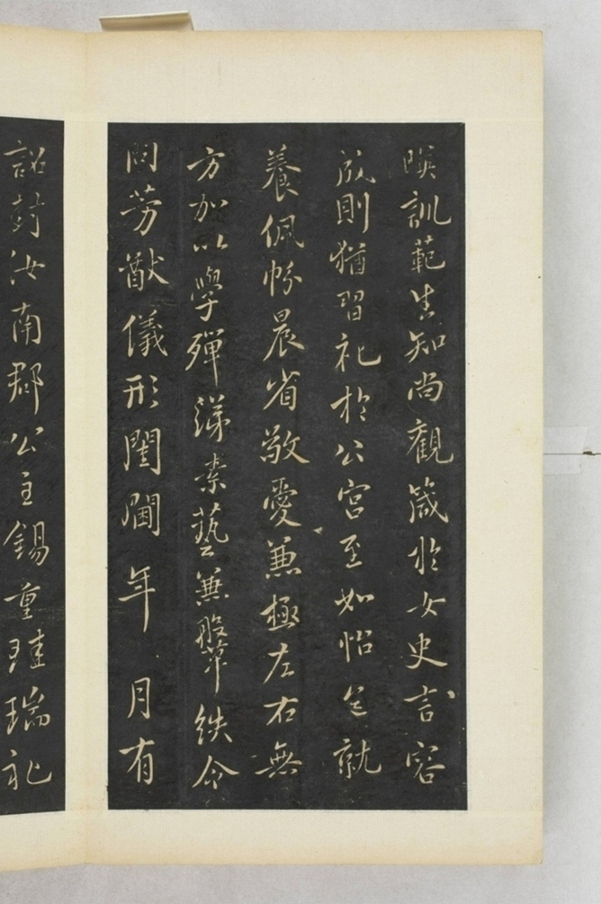 暎訓範生知尚觀箴於女史言容
成則猶習礼於公宮至如怡色就
養佩帉晨省敬愛兼極左右無
方加以學殫綈素藝兼鞶紩令
問芳猷儀形閨閫年月有
詔封汝南郡公主錫重珪瑞礼